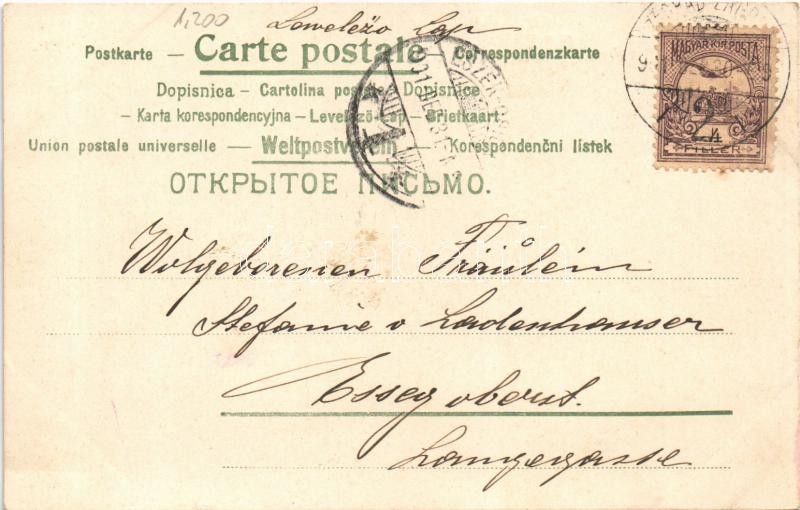 1,200 Levelező Lap
Postkarte — Carte postale — Correspondenzkarte
Dopisnica — Cartolina postale — Dopisnice
— Karta korespondencyjna — Levelező-Lap — Briefkaart —
Union postale universelle — Weltpostverein — Korespondenční lístek
ОТКРЫТОЕ ПИСЬМО.
MAGYAR KIR. POSTA
2
FILLÉR
Wolgeborenen Fräulein
Stefanie v Ladenhauser
Esseg oberst.
Langegasse